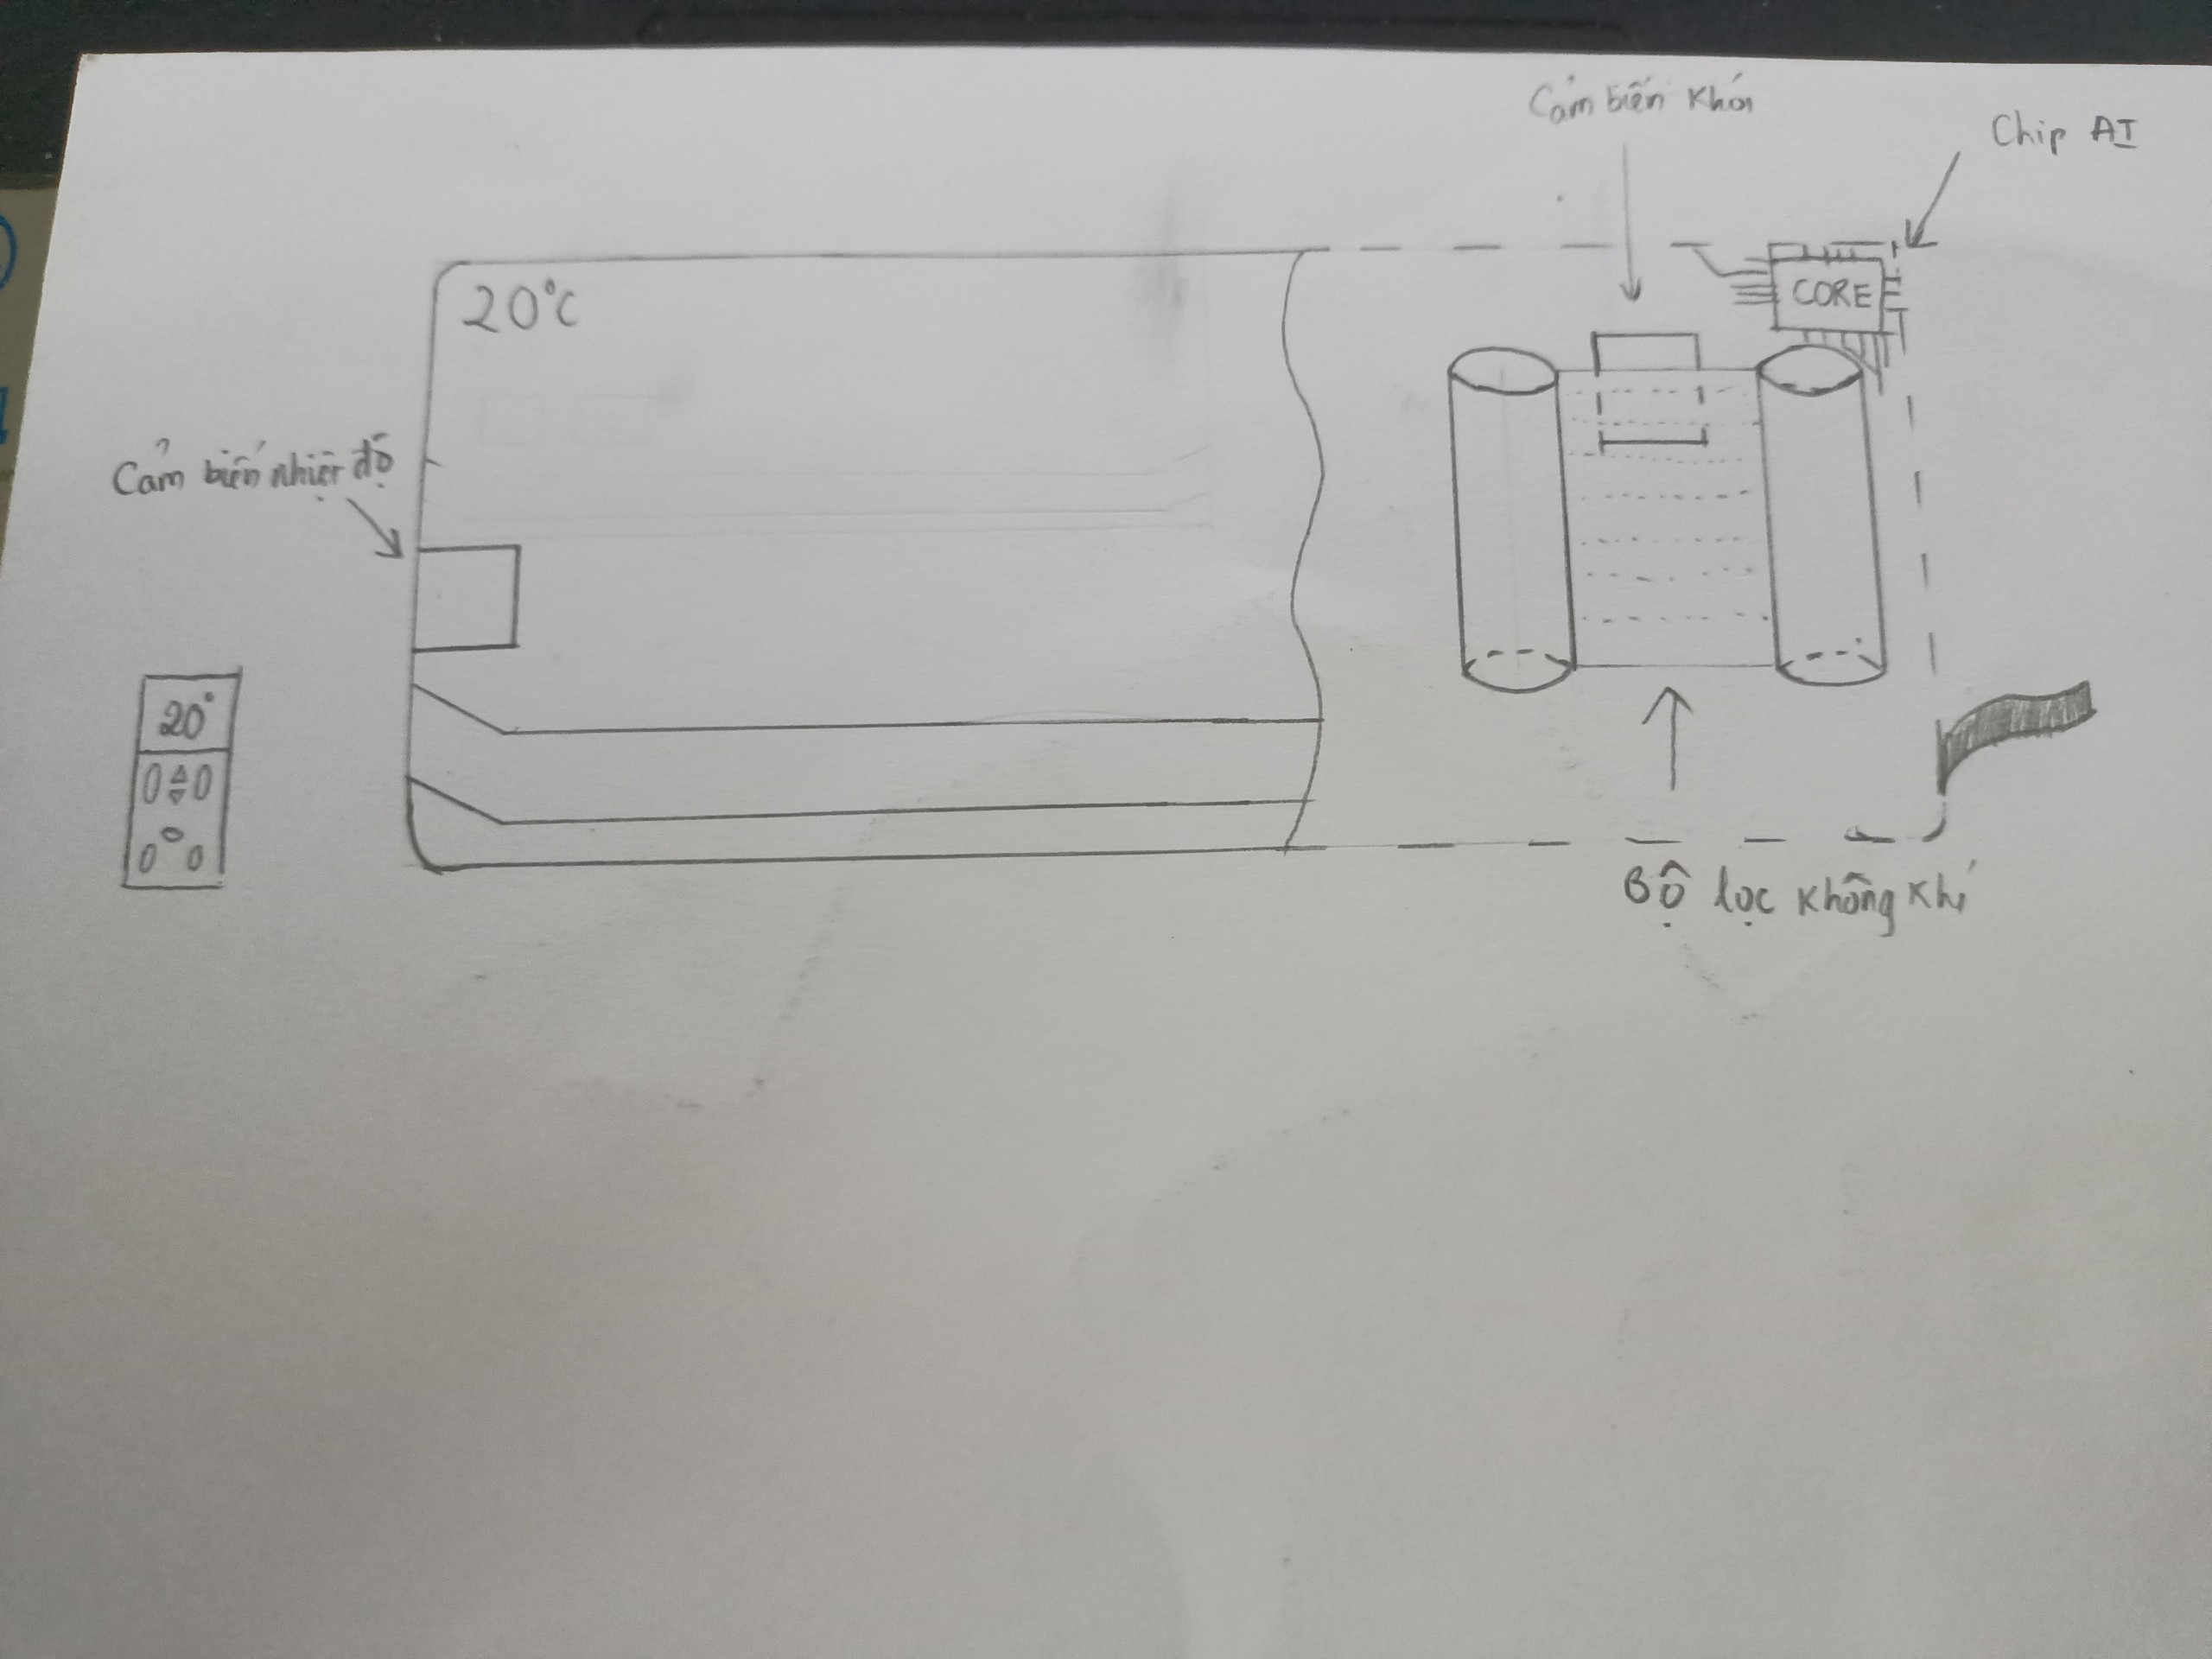 Cảm biến khói
Chip AI
20°C
CORE
Cảm biến nhiệt độ
20°
Bộ lọc không khí